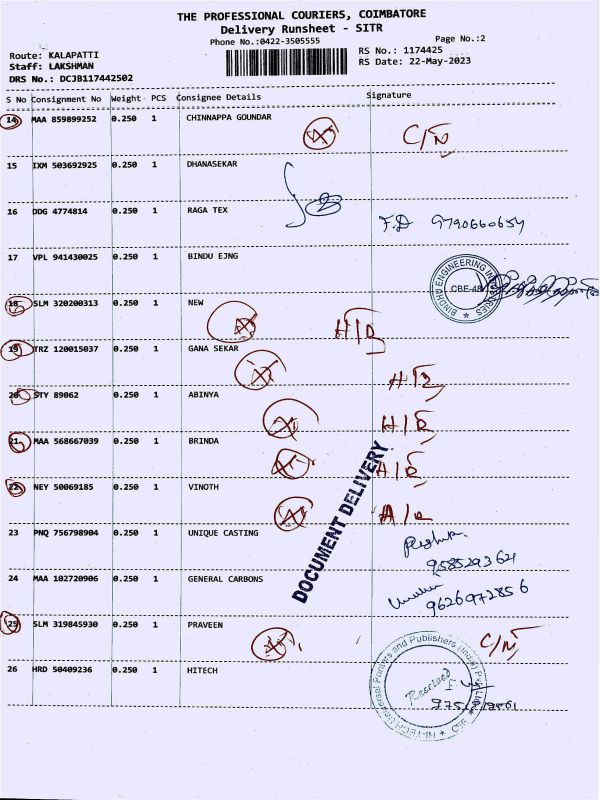 THE PROFESSIONAL COURIERS, COIMBATORE
Delivery Runsheet - SITR
Phone No.:0422-3505555
Page No.:2
Route: KALAPATTI
RS No.: 1174425
Staff: LAKSHMAN
RS Date: 22-May-2023
DRS No.: DCJB117442502
S No Consignment No Weight PCS Consignee Details Signature
14 MAA 859899252 0.250 1 CHINNAPPA GOUNDAR C/N
15 IXM 503692925 0.250 1 DHANASEKAR
16 DDG 4774814 0.250 1 RAGA TEX F.D 9790660654
17 VPL 941430025 0.250 1 BINDU EJNG
BINDHU ENGINEERING INDUSTRIES
CBE-48
18 SLM 320200313 0.250 1 NEW
19 TRZ 120015037 0.250 1 GANA SEKAR
20 STY 89062 0.250 1 ABINYA
21 MAA 568667039 0.250 1 BRINDA
22 NEY 50069185 0.250 1 VINOTH
DOCUMENT DELIVERY
23 PNQ 756798904 0.250 1 UNIQUE CASTING
9585293621
24 MAA 102720906 0.250 1 GENERAL CARBONS
9626972856
25 SLM 319845930 0.250 1 PRAVEEN C/N
26 HRD 50409236 0.250 1 HITECH
HI-TECH Universal Printers and Publishers (India) Pvt Ltd
Received